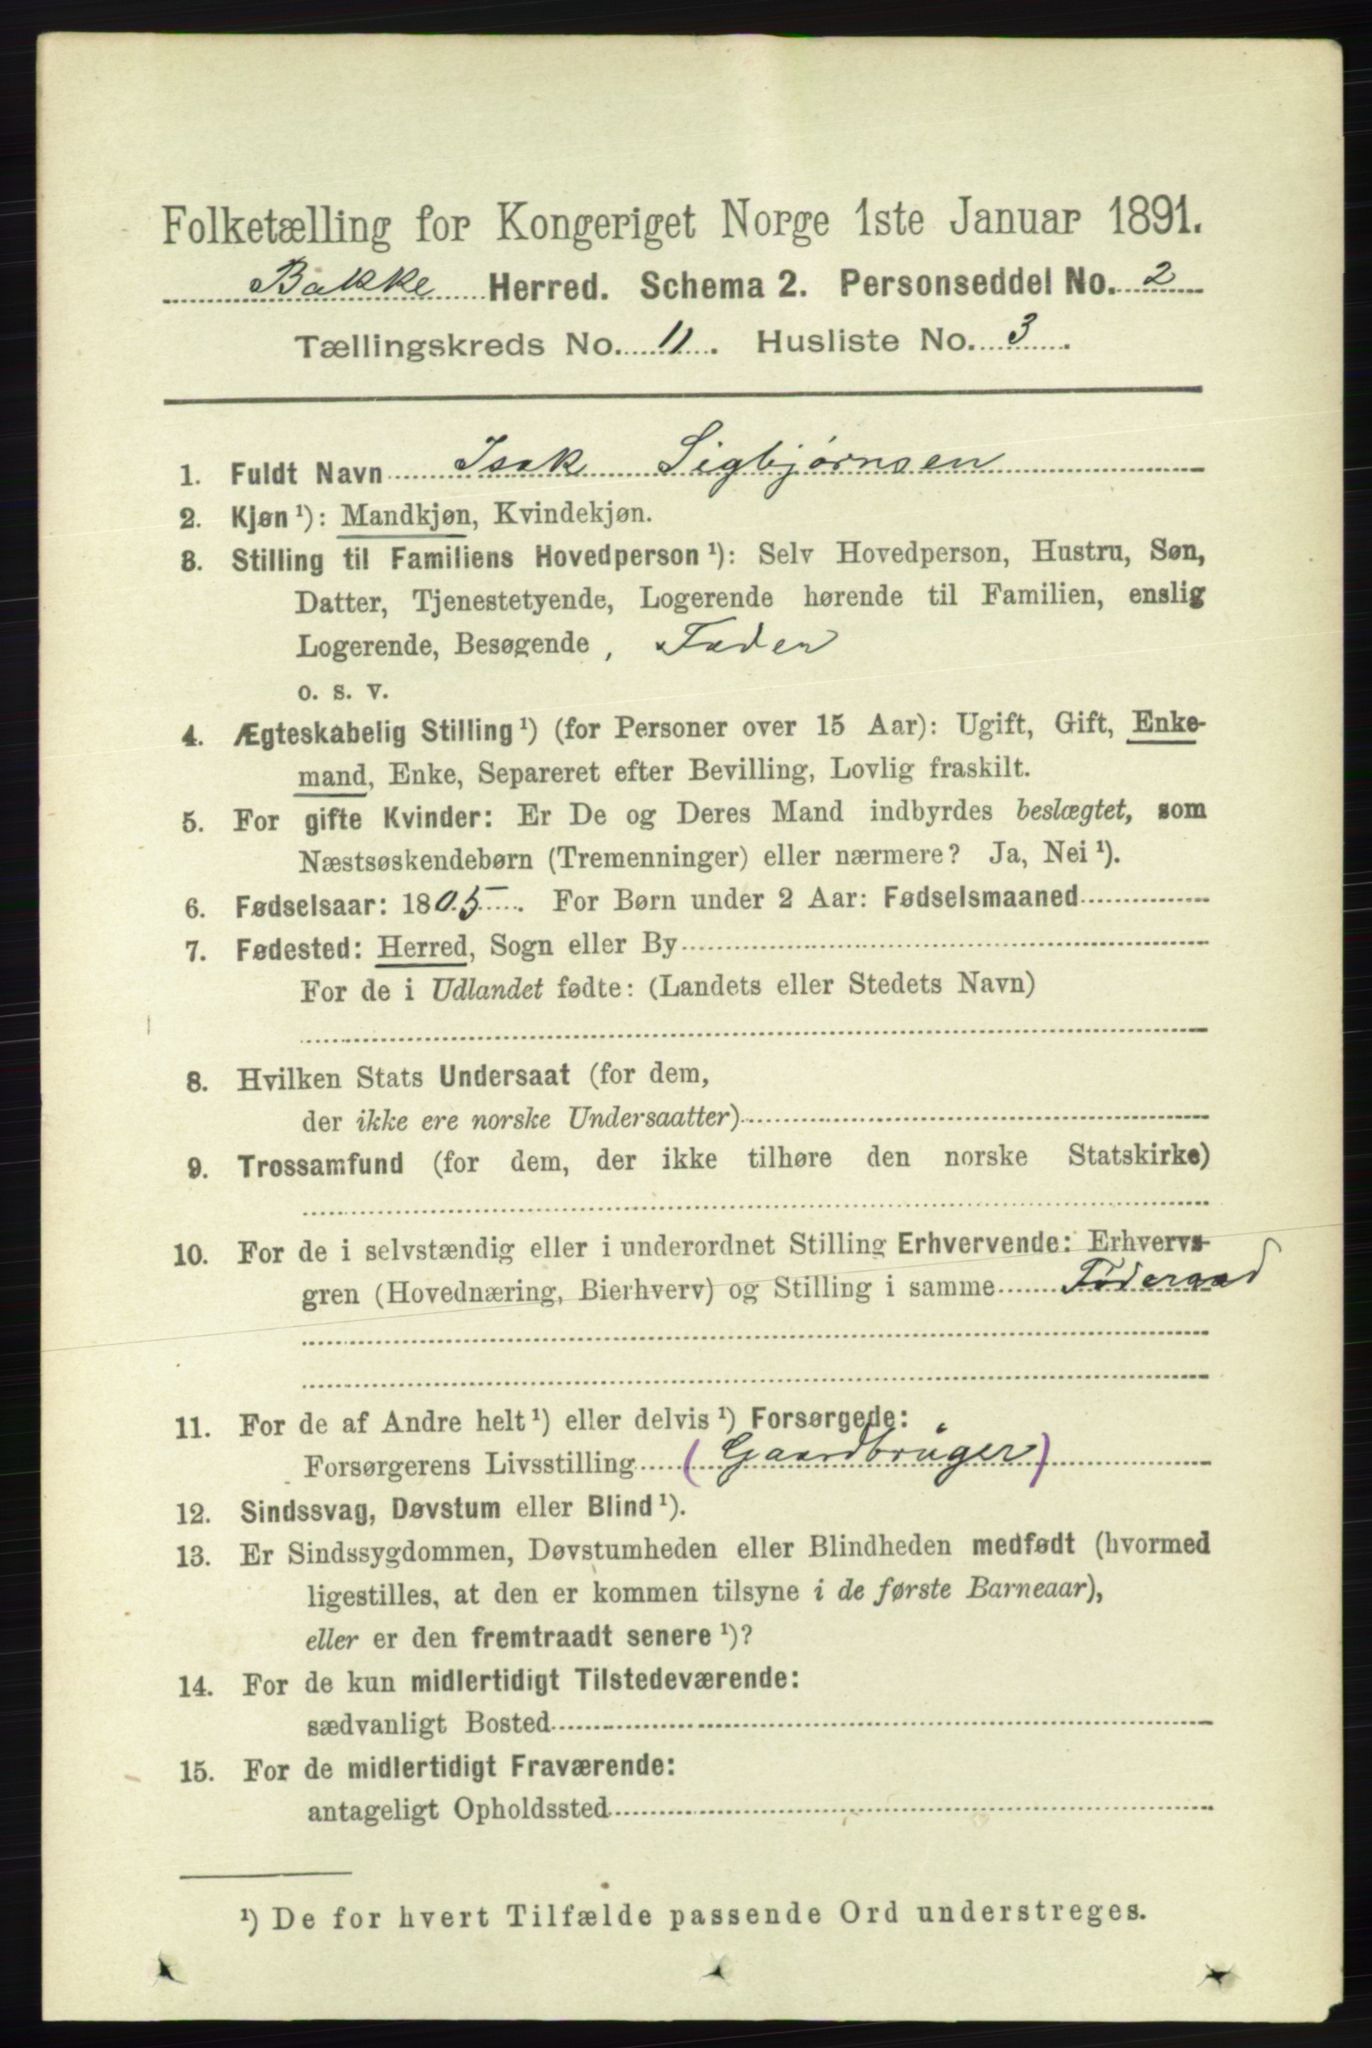 Folketælling for Kongeriget Norge 1ste Januar 1891.
Bakke Herred. Schema 2. Personseddel No. 2
Tællingskreds No. 11. Husliste No. 3.
1. Fuldt Navn Isak Sigbjørnsen
2. Kjøn ¹): Mandkjøn, Kvindekjøn.
3. Stilling til Familiens Hovedperson ¹): Selv Hovedperson, Hustru, Søn,
Datter, Tjenestetyende, Logerende hørende til Familien, enslig
Logerende, Besøgende, Fader
o. s. v.
4. Ægteskabelig Stilling ¹) (for Personer over 15 Aar): Ugift, Gift, Enke-
mand, Enke, Separeret efter Bevilling, Lovlig fraskilt.
5. For gifte Kvinder: Er De og Deres Mand indbyrdes beslægtet, som
Næstsøskendebørn (Tremenninger) eller nærmere? Ja, Nei ¹).
6. Fødselsaar: 1805. For Børn under 2 Aar: Fødselsmaaned
7. Fødested: Herred, Sogn eller By
For de i Udlandet fødte: (Landets eller Stedets Navn)
8. Hvilken Stats Undersaat (for dem,
der ikke ere norske Undersaatter)
9. Trossamfund (for dem, der ikke tilhøre den norske Statskirke)
10. For de i selvstændig eller i underordnet Stilling Erhvervende: Erhvervs-
gren (Hovednæring, Bierhverv) og Stilling i samme Føderaad
11. For de af Andre helt ¹) eller delvis ¹) Forsørgede:
Forsørgerens Livsstilling (Gaardbruger)
12. Sindssvag, Døvstum eller Blind ¹).
13. Er Sindssygdommen, Døvstumheden eller Blindheden medfødt (hvormed
ligestilles, at den er kommen tilsyne i de første Barneaar),
eller er den fremtraadt senere ¹)?
14. For de kun midlertidigt Tilstedeværende:
sædvanligt Bosted
15. For de midlertidigt Fraværende:
antageligt Opholdssted
¹) De for hvert Tilfælde passende Ord understreges.